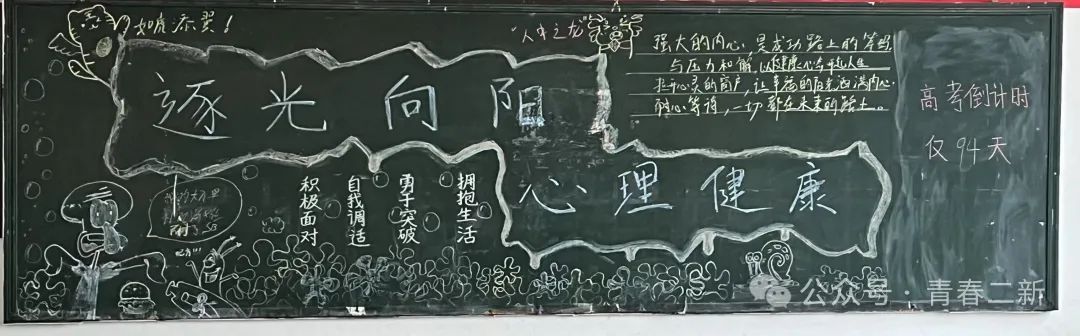 如虎添翼！
“人中之龙”
逐光向阳
心理健康
强大的内心，是成功路上的筹码
与压力和解，以健康心态赴人生
打开心灵的窗户，让幸福的阳光洒满内心
耐心等待，一切都在未来的路上。
高考倒计时
仅94天
拥抱生活
勇于突破
自我调适
积极面对
公众号·青春二新